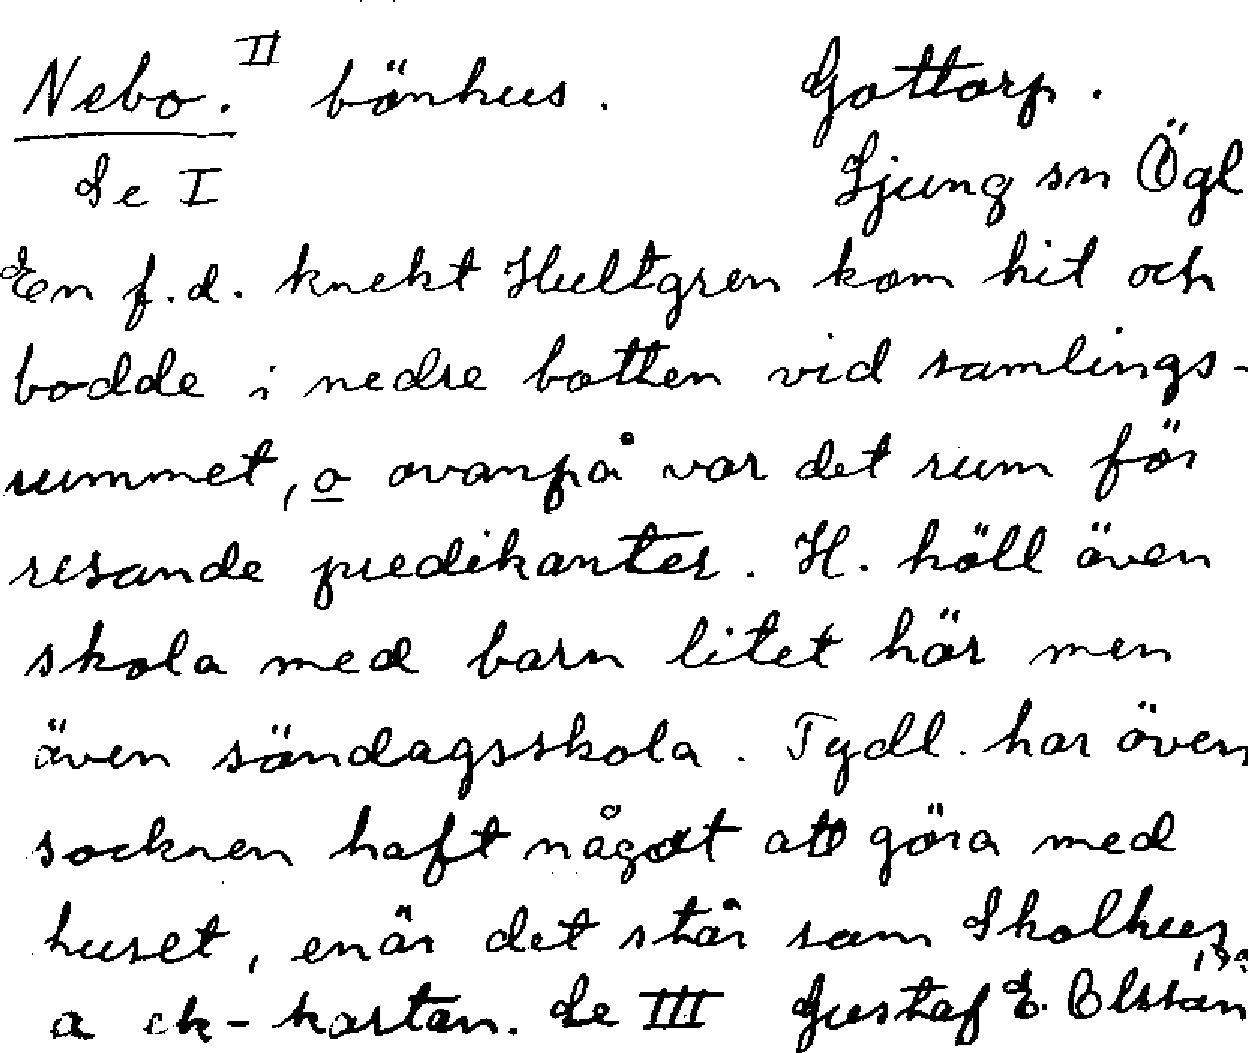 Nebo. II bönhus. Gottorp.
Se I Ljung sn Ögl
En f.d. knekt Hultgren kom hit och
bodde i nedre botten vid samlings-
rummet, o ovanpå var det rum för
resande predikanter. H. höll även
skola med barn litet här men
även söndagsskola. Tydl. har även
socknen haft något att göra med
huset, enär det står som Skolhus
a ek-kartan. Se III Gustaf E. Olsson